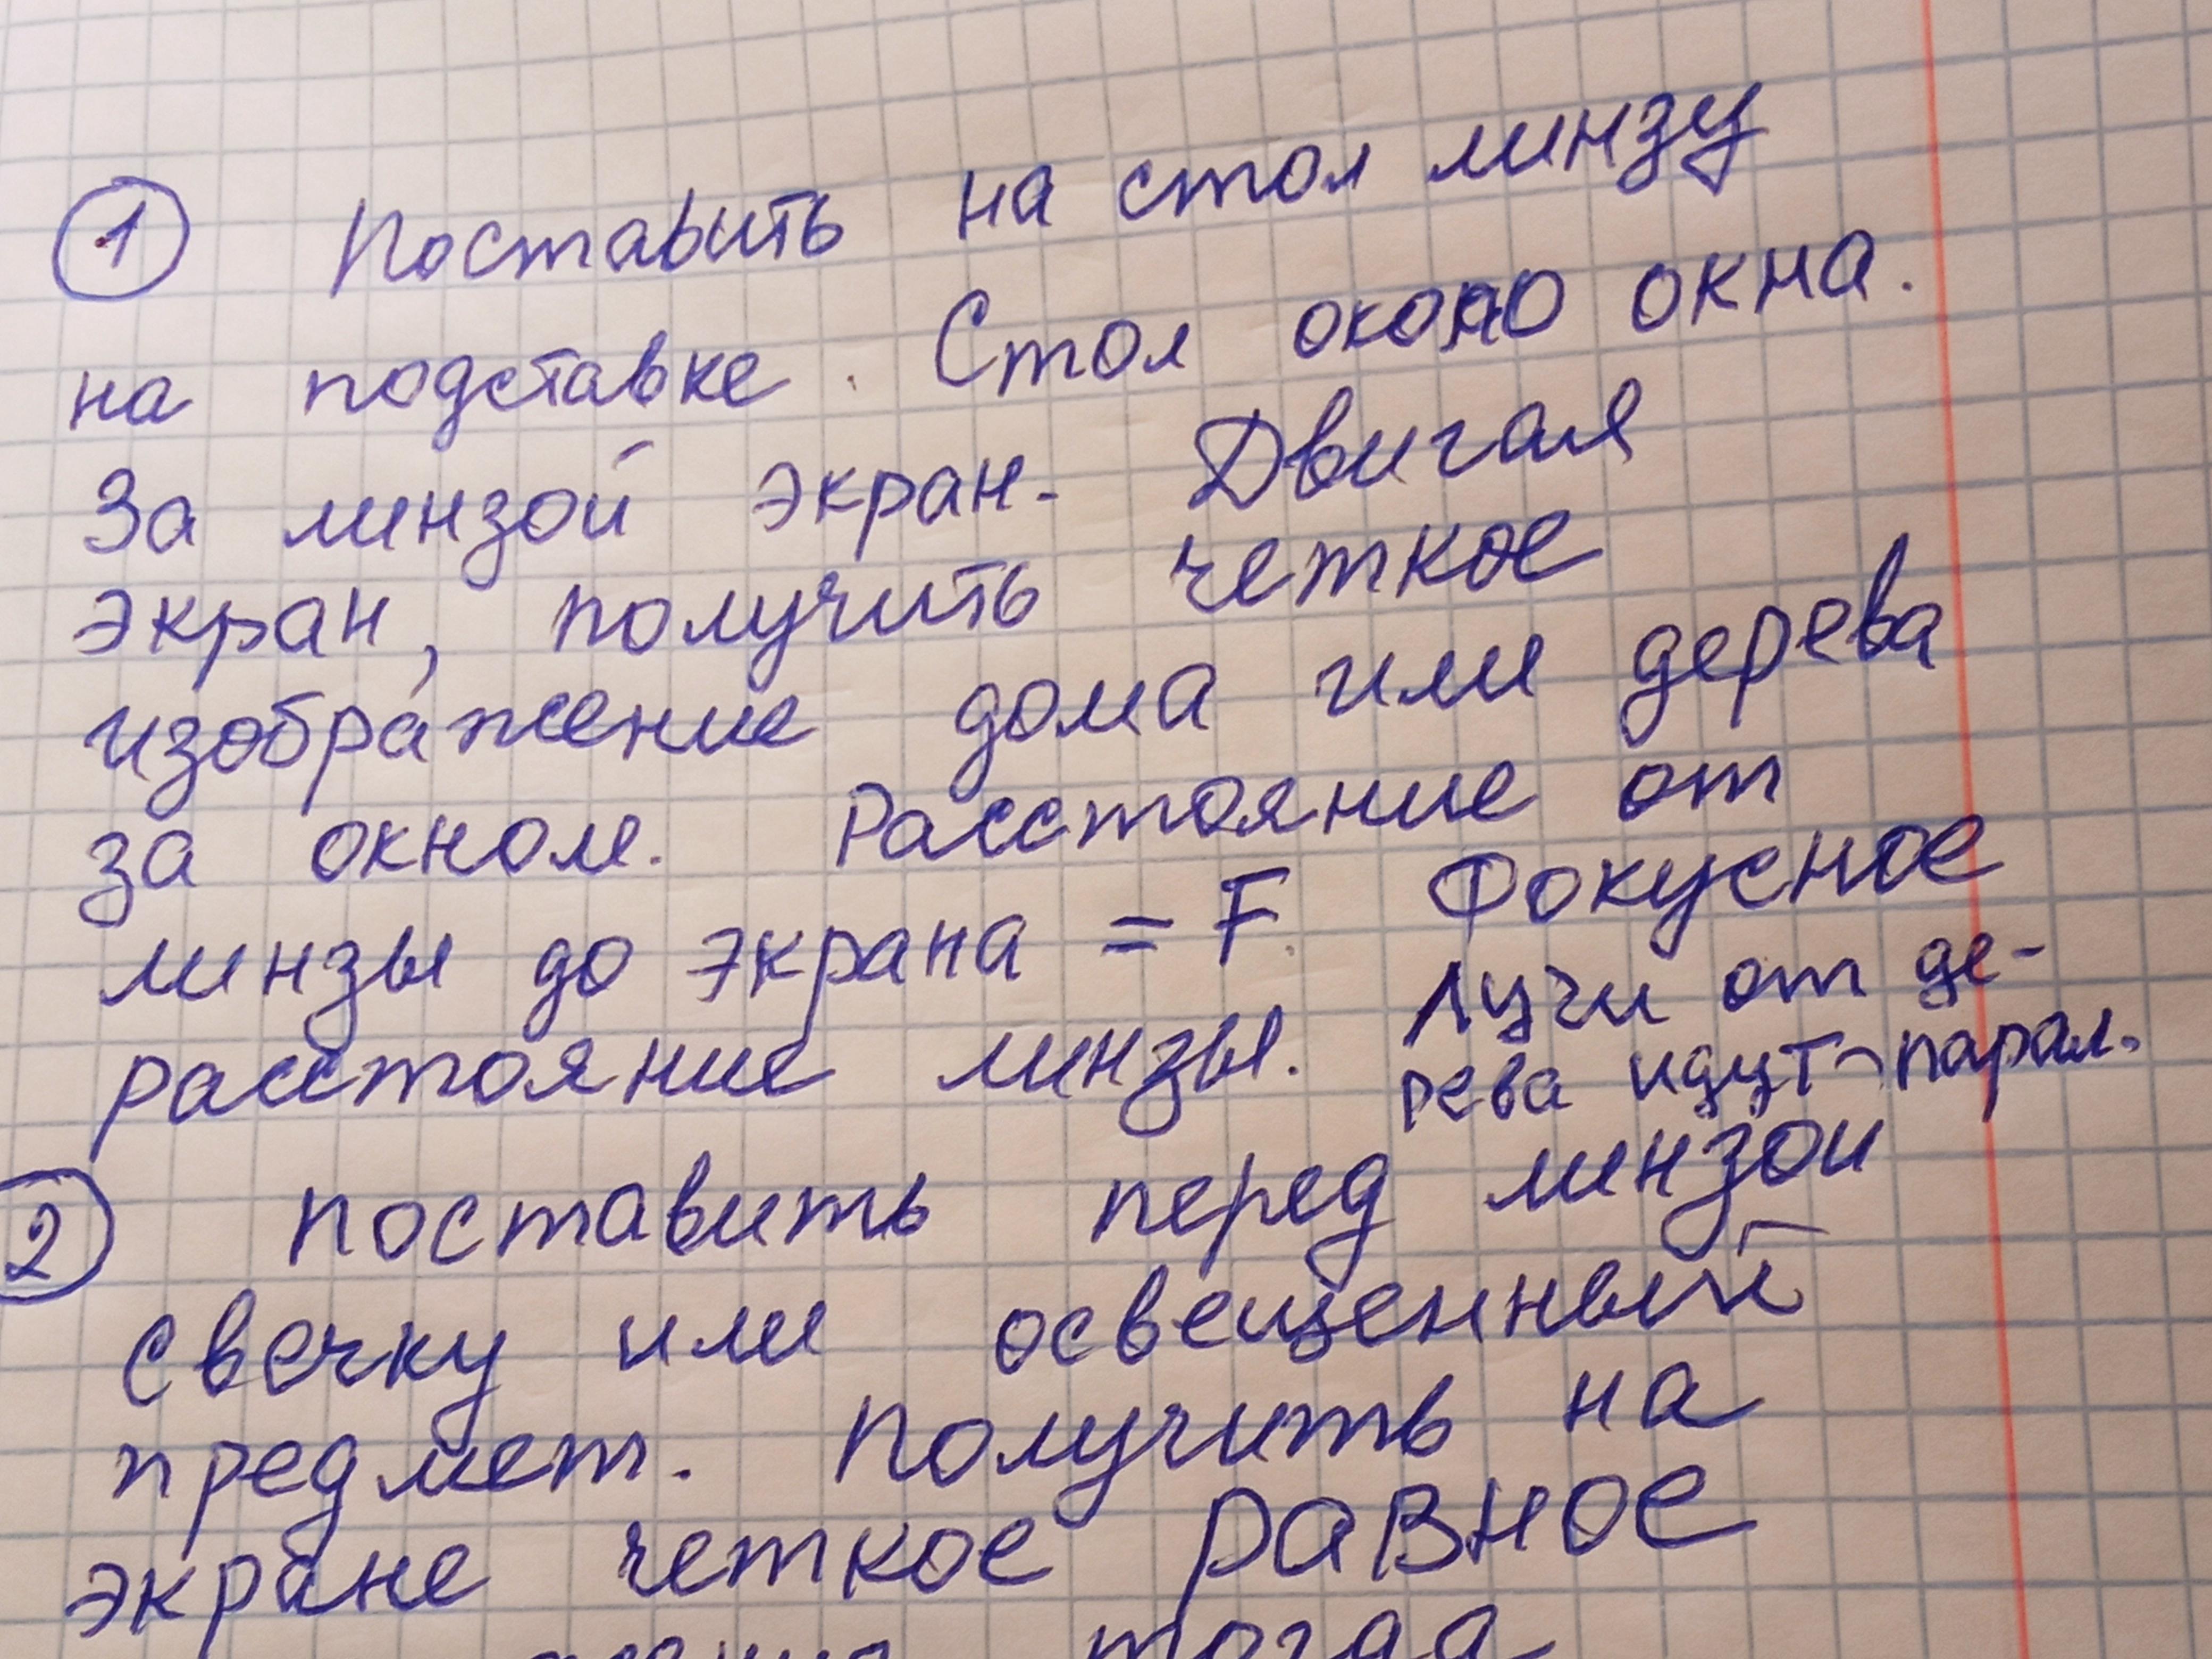 1 Поставить на стол линзу
на подставке. Стол около окна.
За линзой экран. Двигая
экран, получить четкое
изображение дома или дерева
за окном. Расстояние от
линзы до экрана = F. Фокусное
расстояние линзы. Лучи от де-
рева идут парал.
2 поставить перед линзой
свечку или освещенный
предмет. Получить на
экране четкое равное
тогда